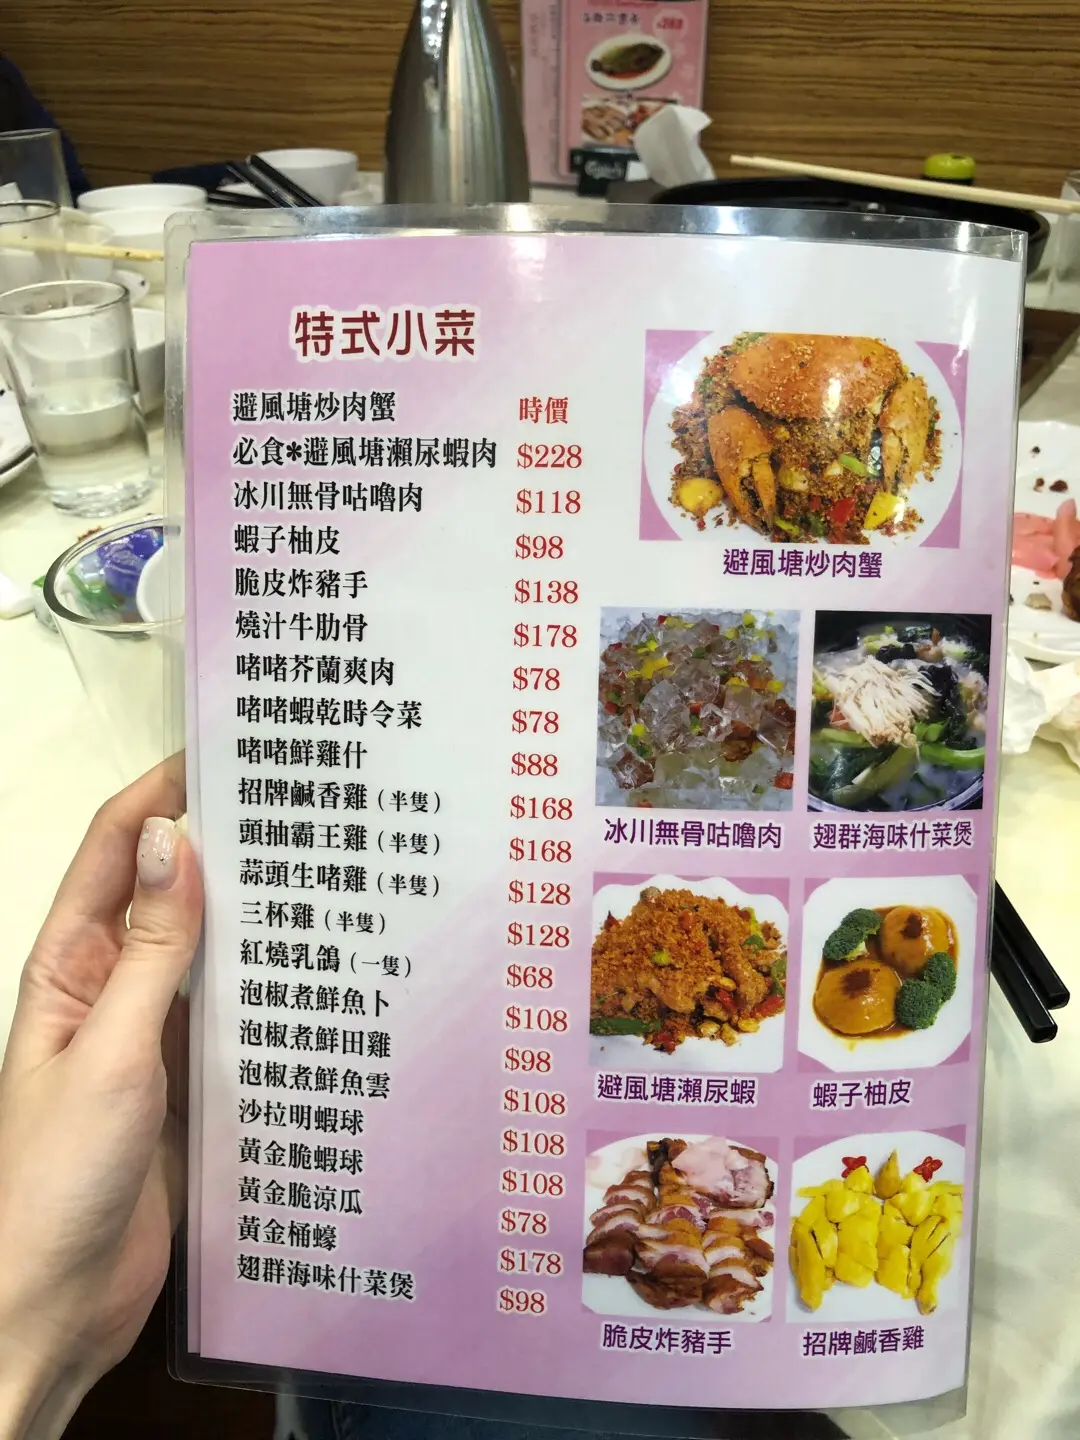 特式小菜
避風塘炒肉蟹 時價
必食*避風塘瀨尿蝦肉 $228
冰川無骨咕嚕肉 $118
蝦子柚皮 $98
脆皮炸豬手 $138
燒汁牛肋骨 $178
啫啫芥蘭爽肉 $78
啫啫蝦乾時令菜 $78
啫啫鮮雞什 $88
招牌鹹香雞(半隻) $168
頭抽霸王雞(半隻) $168
蒜頭生啫雞(半隻) $128
三杯雞(半隻) $128
紅燒乳鴿(一隻) $68
泡椒煮鮮魚卜 $108
泡椒煮鮮田雞 $98
泡椒煮鮮魚雲 $108
沙拉明蝦球 $108
黃金脆蝦球 $108
黃金脆涼瓜 $78
黃金桶蠔 $178
翅群海味什菜煲 $98
避風塘炒肉蟹
冰川無骨咕嚕肉
翅群海味什菜煲
避風塘瀨尿蝦
蝦子柚皮
脆皮炸豬手
招牌鹹香雞